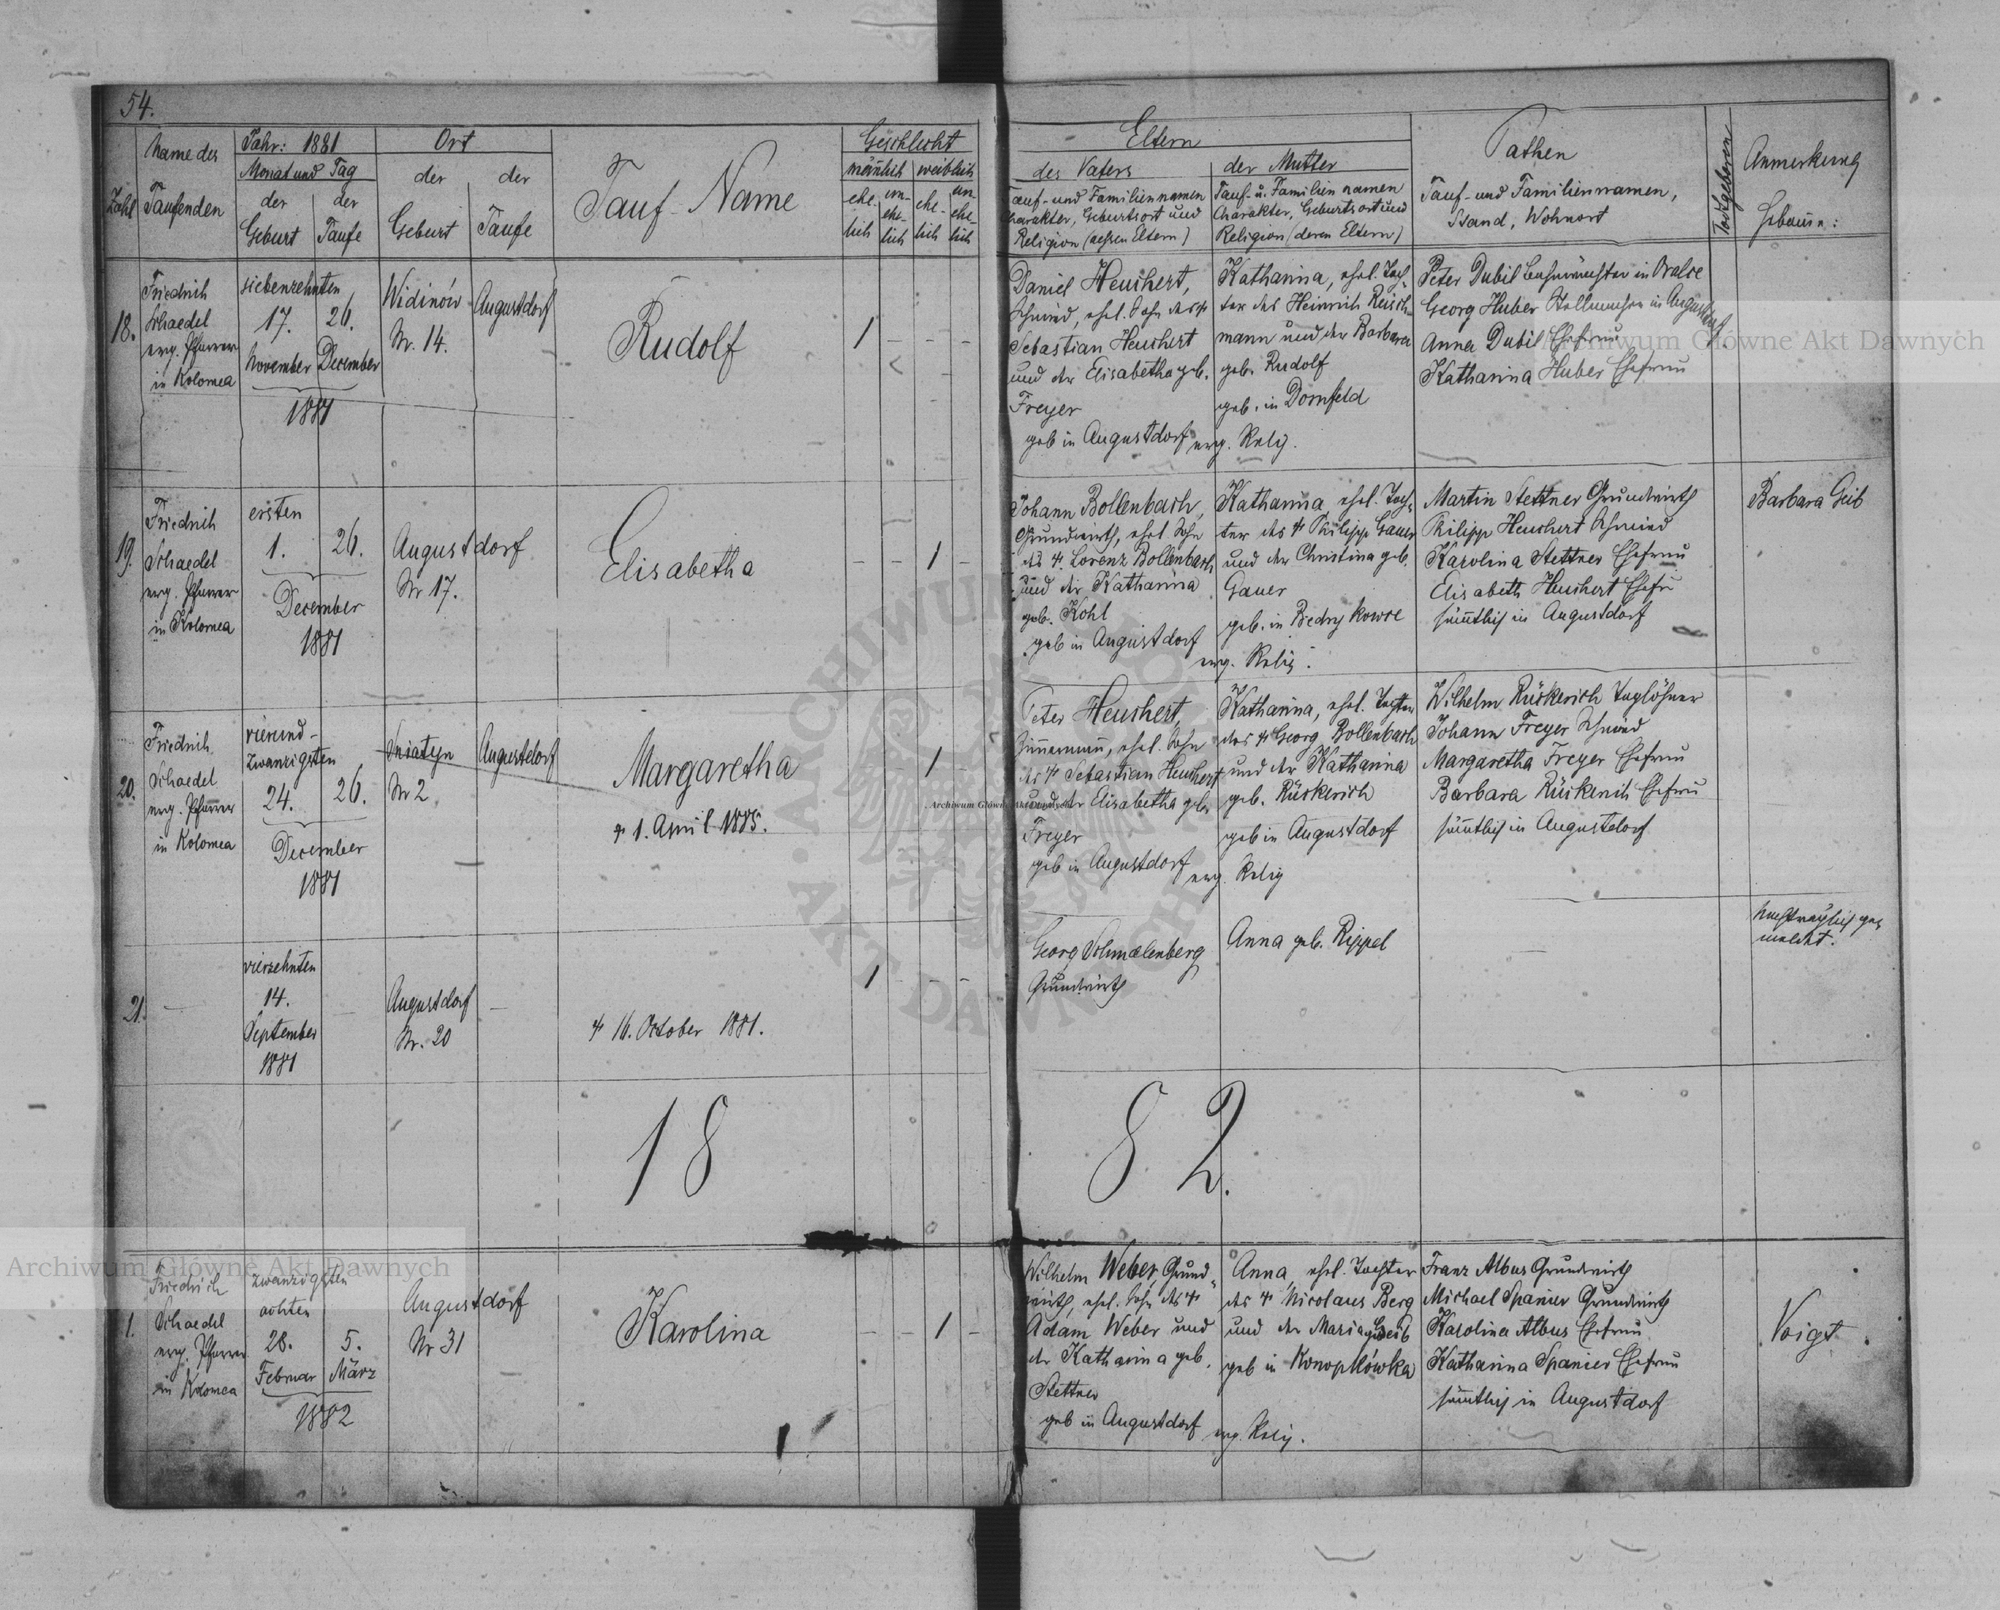 54.
Name des
Taufenden
Zahl
Jahr: 1881
Monat und Tag
der Geburt
der Taufe
Ort
der Geburt
der Taufe
Tauf-Name
Geschlecht
männlich
weiblich
ehe-lich
un-ehe-lich
ehe-lich
un-ehe-lich
Eltern
des Vaters
Tauf- und Familiennamen
Charakter, Geburtsort und
Religion (dessen Eltern)
der Mutter
Tauf- u. Familiennamen
Charakter, Geburtsort und
Religion (deren Eltern)
Pathen
Tauf- und Familiennamen,
Stand, Wohnort
Todtgeboren
Anmerkung
Hebamme:
18.
Friedrich
Schaedel
evg. Pfarrer
in Kolomea
siebenzehnten
17. 26.
November December
1881
Widinów
Nr. 14.
Augustdorf
Rudolf
1 - - -
Daniel Heuchert,
Schmied, ehel. Sohn des †
Sebastian Heuchert
und der Elisabetha geb.
Freyer
geb in Augustdorf
Kathanina, ehel. Toch-
ter des Heinrich Reisch-
mann und der Barbara
geb. Rudolf
geb. in Dornfeld
evg. Relig.
Peter Dubil in
Georg Huber in Augustdorf
Anna Dubil Ehefrau
Kathanina Huber Ehefrau
19.
Friedrich
Schaedel
evg. Pfarrer
in Kolomea
ersten
1. 26.
December
1881
Augustdorf
Nr 17.
Elisabetha
- - 1 -
Johann Bollenbach,
Grundwirth, ehel. Sohn
des †. Lorenz Bollenbach
und der Kathanina
geb. Kohl
geb in Augustdorf
Kathanina, ehel. Toch-
ter des † Philipp Gauer
und der Christina geb.
Gauer
geb. in
evg. Relig.
Martin Stettner Grundwirth
Philipp Heuchert Schmied
Karolina Stettner Ehefrau
Elisabeth Heuchert Ehefr
sämtlich in Augustdorf
Barbara Geib
20.
Friedrich
Schaedel
evg. Pfarrer
in Kolomea
vierund-
zwanzigsten
24. 26.
December
1881
Sniatyn
Nr 2
Augustdorf
Margaretha
† 1. April 1885.
- - 1 -
Peter Heuchert,
Zimmermann, ehel. Sohn
des † Sebastian Heuchert
und der Elisabetha geb.
Freyer
geb in Augustdorf
Kathanina, ehel. Tochter
des † Georg Bollenbach
und der Kathanina
geb. Rückerich
geb in Augustdorf
evg. Relig
Wilhelm Rückerich Taglöhner
Johann Freyer Schmied
Margaretha Freyer Ehefrau
Barbara Rückerich Ehefrau
sämtlich in Augustdorf
21.
-
vierzehnten
14.
September
1881
-
Augustdorf
Nr. 20
-
† 16. October 1881.
1 - - -
Georg Schmalenberg
Grundwirth
Anna geb. Rippel
-
nachträglich ge-
meldet.
18 82.
1.
Friedrich
Schaedel
evg. Pfarrer
in Kolomea
zwanzigsten
achten
28. 5.
Februar März
1882
Augustdorf
Nr 31
Karolina
- - 1 -
Wilhelm Weber, Grund-
wirth, ehel. Sohn des †
Adam Weber und
der Kathanina geb.
Stettner
geb in Augustdorf
Anna, ehel. Tochter
des † Nicolaus Berg
und der Maria Geib
geb in Konopkówka
evg. Relig.
Franz Albus Grundwirth
Michael Spanier Grundwirth
Karolina Albus Ehefrau
Kathanina Spanier Ehefrau
sämtlich in Augustdorf
Voigt.
Archiwum Główne Akt Dawnych
Archiwum Główne Akt Dawnych
Archiwum Główne Akt Dawnych